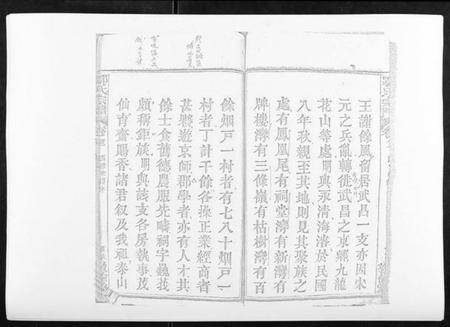 王謝餘風留居武昌一支亦因宋
元之兵亂轉徙武昌之東經九龍
花山等處開與永清海溶於民國
八年秋親至其地則見其聚族之
處有鳳凰尾有祠堂灣有新灣有
牌樓灣有三條嶺有枯樹灣有百
餘烟戸一村者有七八十烟戸一
村者丁計千餘各操正業經商者
甚夥遊京師郡學者亦有人才其
餘士食舊德農服先疇祠宇巍莪
頗稱鉅族開與該支各房執事茂
仙育齋賜香諸君叙及我祖泰山